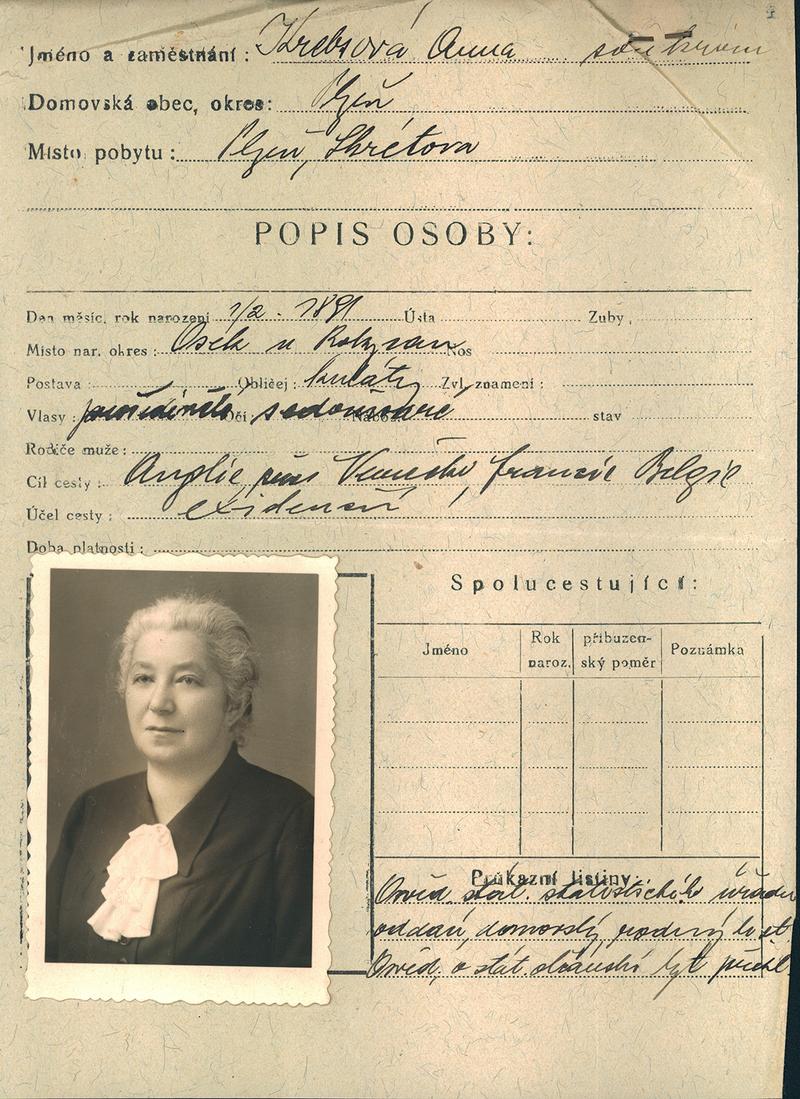 Jméno a zaměstnání: Krebsová Anna soukrom
Domovská obec, okres: Plzeň
Místo pobytu: Plzeň, Skrétova
POPIS OSOBY:
Den měsíc, rok narození 1/2. 1891 Ústa Zuby
Místo nar. okres: Osek u Rokycan Nos
Postava: Obličej: kulatý Zvl. znamení:
Vlasy: prošedivělé Očí: šedomodré Nábož. stav
Rodiče muže:
Cíl cesty: Anglie, přes Německo, Francie Belgie
Účel cesty: existenční
Doba platnosti:
Spolucestující:
Jméno Rok naroz. příbuzen-ský poměr Poznámka
Průkazní listiny:
Osvěd. stát. statistického úřadu
oddací, domovský, rodný list
Osvěd. o stát. občanství byt. přihl.